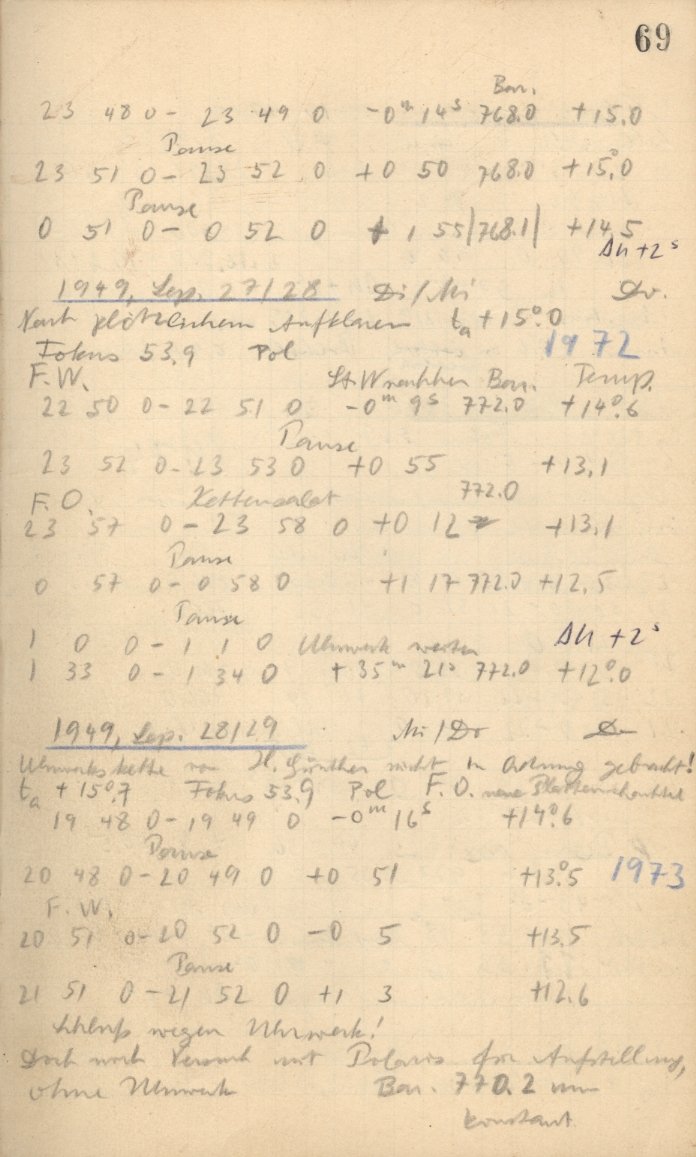 69
Bar.
23 48 0 - 23 49 0 -0ᵐ 14ˢ 768.0 +15.0
Pause
23 51 0 - 23 52 0 +0 50 768.0 +15°.0
Pause
0 51 0 - 0 52 0 + 1 55 |768.1| +14.5
Δu +2ˢ
1949, Sep. 27/28 Di/Mi Dr.
Nach plötzlichem Aufklaren tₐ +15°.0
Fokus 53,9 Pol 1972
F.W. Bar. Temp.
22 50 0 - 22 51 0 -0ᵐ 9ˢ 772.0 +14°.6
Pause
23 52 0 - 23 53 0 +0 55 +13,1
F.O. Kettensalat 772.0
23 57 0 - 23 58 0 +0 12 +13,1
Pause
0 57 0 - 0 58 0 +1 17 772.0 +12,5
Pause
1 0 0 - 1 1 0 Uhrwerk Δu +2ˢ
1 33 0 - 1 34 0 + 35ᵐ 21ˢ 772.0 +12°.0
1949, Sep. 28/29 Mi/Do
Uhrwerkskette von H. Günther nicht in Ordnung gebracht!
tₐ +15°.7 Fokus 53,9 Pol F.O. neue
19 48 0 - 19 49 0 -0ᵐ 16ˢ +14°.6
Pause
20 48 0 - 20 49 0 +0 51 +13°.5 1973
F.W.
20 51 0 - 20 52 0 -0 5 +13.5
Pause
21 51 0 - 21 52 0 +1 3 +12.6
Schluß wegen Uhrwerk!
Doch noch Versuch mit Polaris für Aufstellung,
ohne Uhrwerk Bar. 770.2 mm
konstant